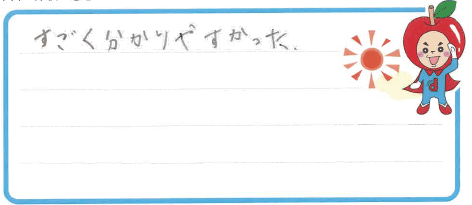 すごく分かりやすかった.
d